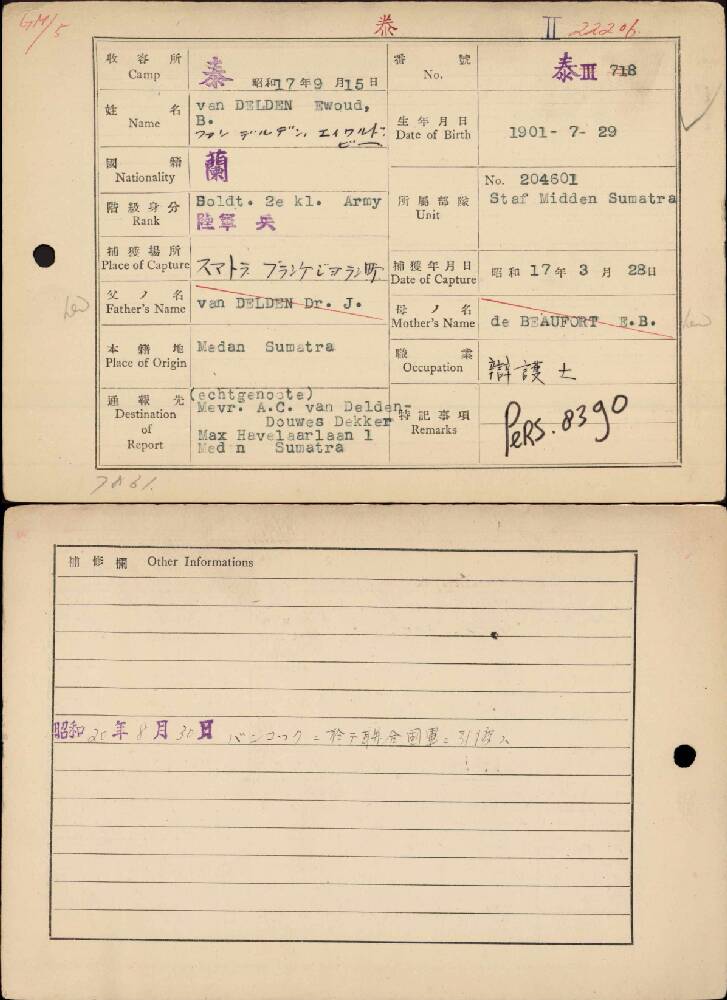 GM/5
泰
II 22206.
收容所 Camp
泰 昭和17年9月15日
番號 No.
泰III 718
姓名 Name
van DELDEN Ewoud,
B.
ファン デルデン、エイワルト・
ビー
生年月日 Date of Birth
1901- 7- 29
國籍 Nationality
蘭
階級身分 Rank
Soldt. 2e kl. Army
陸軍 兵
所屬部隊 Unit
No. 204601
Staf Midden Sumatra
捕獲場所 Place of Capture
スマトラ ブランケジヨラン町
捕獲年月日 Date of Capture
昭和 17年 3月 28日
父ノ名 Father's Name
van DELDEN Dr. J.
母ノ名 Mother's Name
de BEAUFORT E.B.
本籍地 Place of Origin
Medan Sumatra
職業 Occupation
辯護士
通報先 Destination of Report
(echtgenoote)
Mevr. A.C. van Delden-
Douwes Dekker
Max Havelaarlaan 1
Med n Sumatra
特記事項 Remarks
PERS. 8390
補修欄 Other Informations
昭和20年8月30日 バンコックニ於テ聯合国軍ニ引渡ス